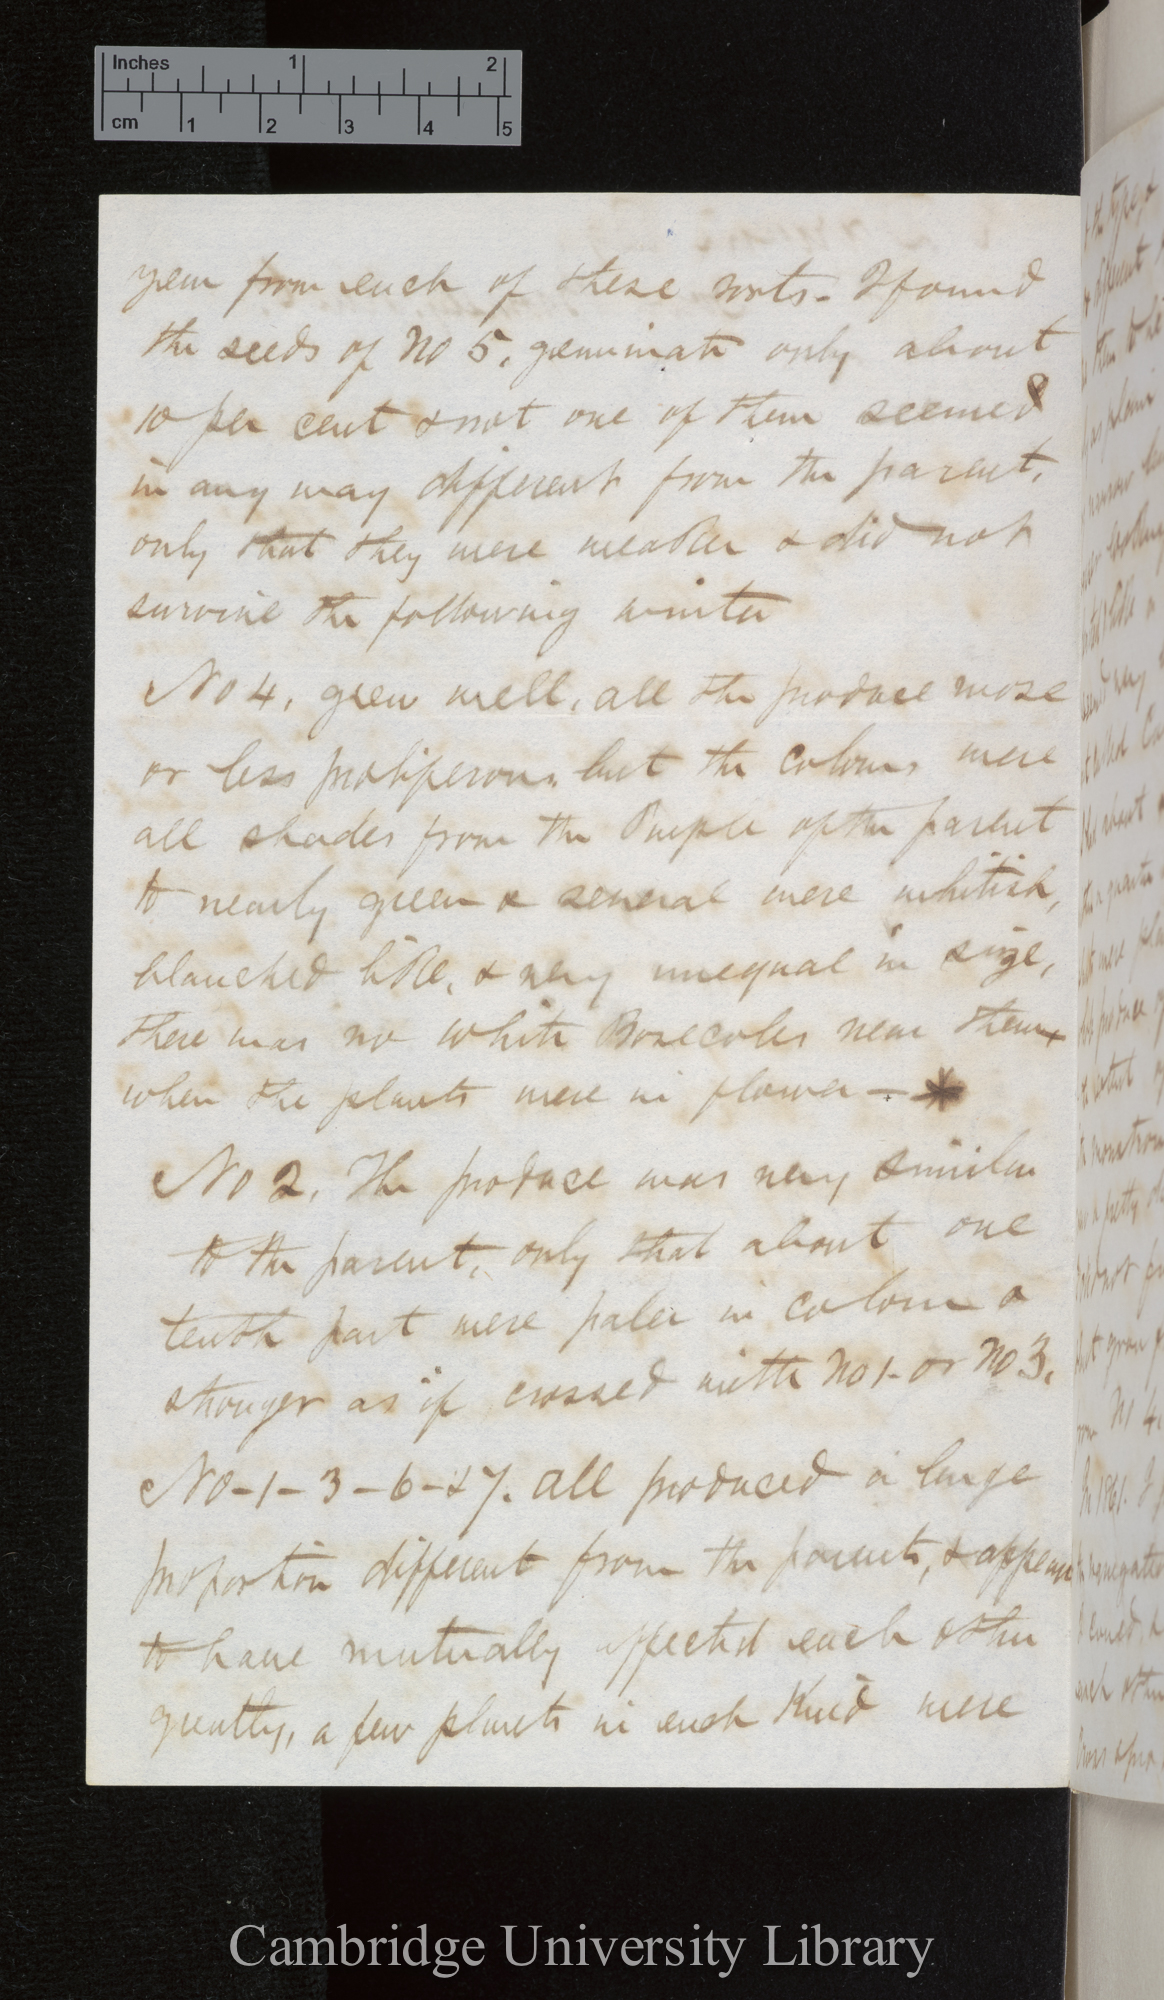 Inches 1 2
cm 1 2 3 4 5
year from each of these sorts - I found
the seeds of No 5, germinate only about
10 per cent & not one of them seemed
in any way different from the parent,
only that they were weaker & did not
survive the following winter
No 4, grew well, all the produce more
or less proliferous, but the colours were
all shades from the Purple of the parent
to nearly green & several were whitish,
blanched like, & very unequal in size,
there was no white Borecoles near them
when the plants were in flower -
No 2, The produce was very similar
to the parent, only that about one
tenth part were paler in colour &
stronger as if crossed with No 1 - or No 3,
No - 1 - 3 - 6 - & 7. all produced a large
proportion different from the parents, & appear
to have mutually affected each other
greatly, a few plants in each Kind were
Cambridge University Library